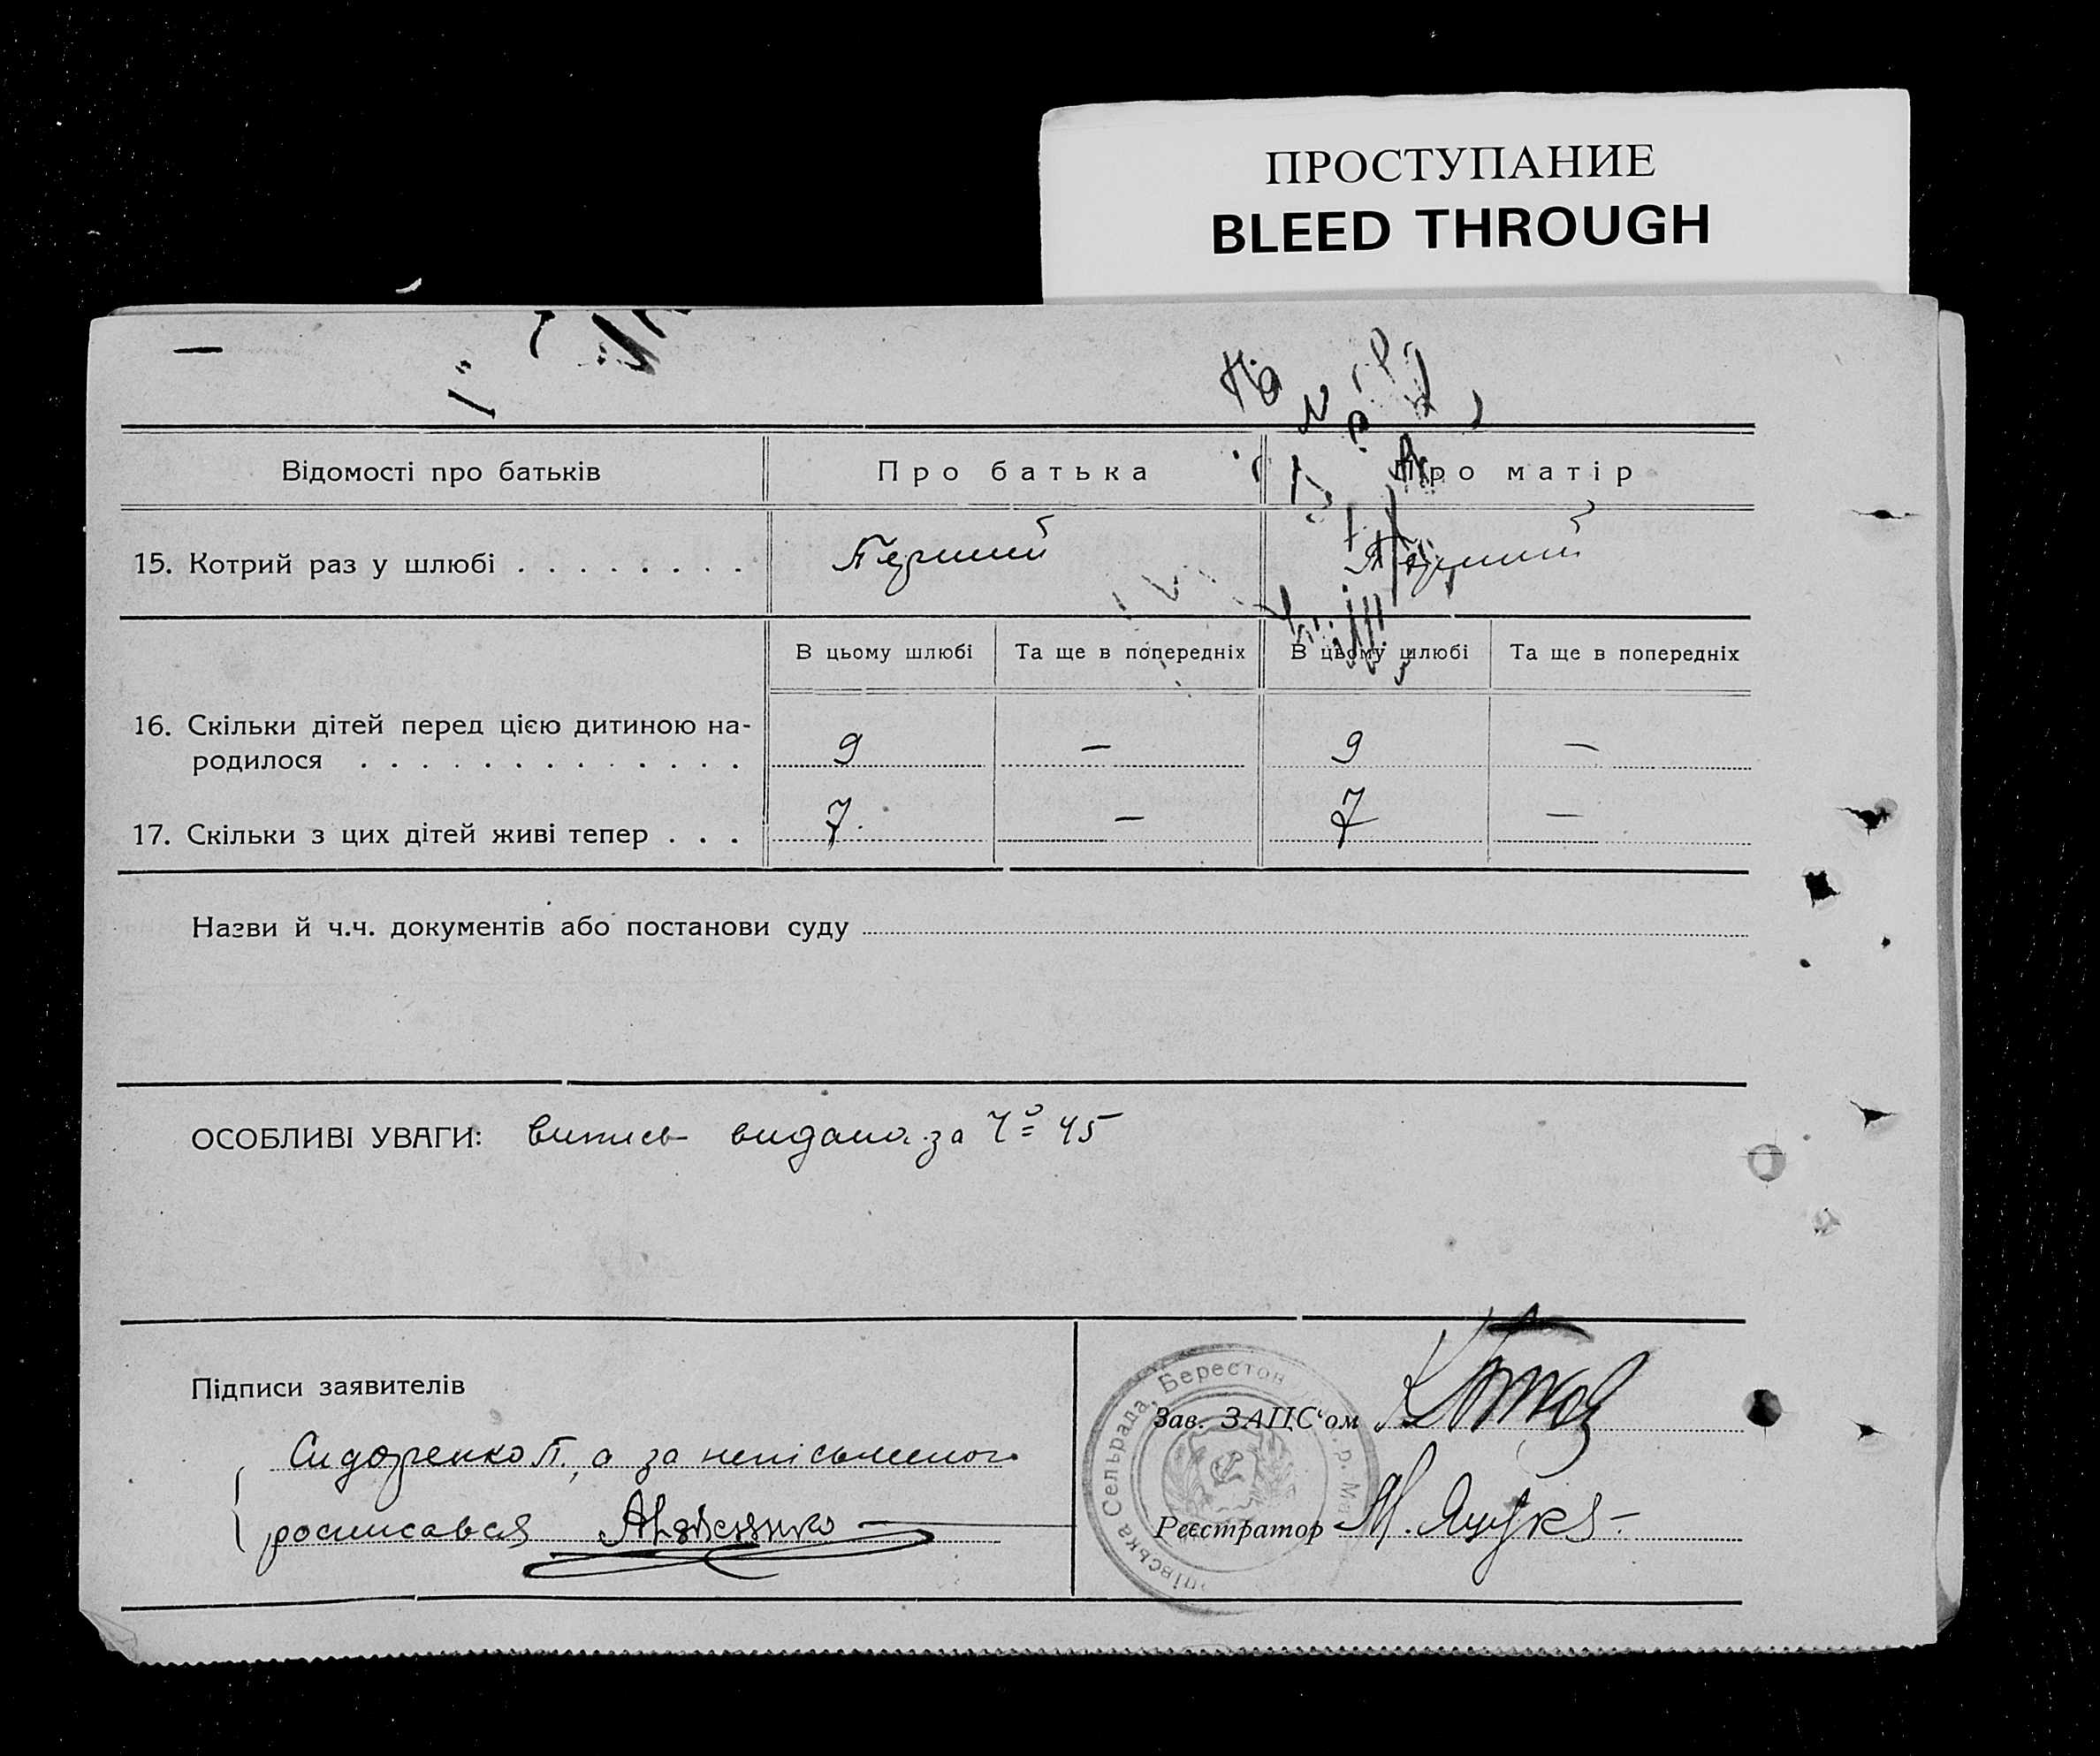 ПРОСТУПАНИЕ
BLEED THROUGH
Відомості про батьків
Про батька
Про матір
15. Котрий раз у шлюбі . . . . . . . .
Перший
Перший
В цьому шлюбі
Та ще в попередніх
В цьому шлюбі
Та ще в попередніх
16. Скільки дітей перед цією дитиною на-
родилося . . . . . . . . . . . . .
9
—
9
—
17. Скільки з цих дітей живі тепер . . .
7
—
7
—
Назви й ч.ч. документів або постанови суду
ОСОБЛИВІ УВАГИ: випись видана за Ч° 45
Підписи заявителів
Сидоренко П., а за непісьменого
росписався
Зав. ЗАЦС'ом
Реєстратор М.
Сельрада, Берестов